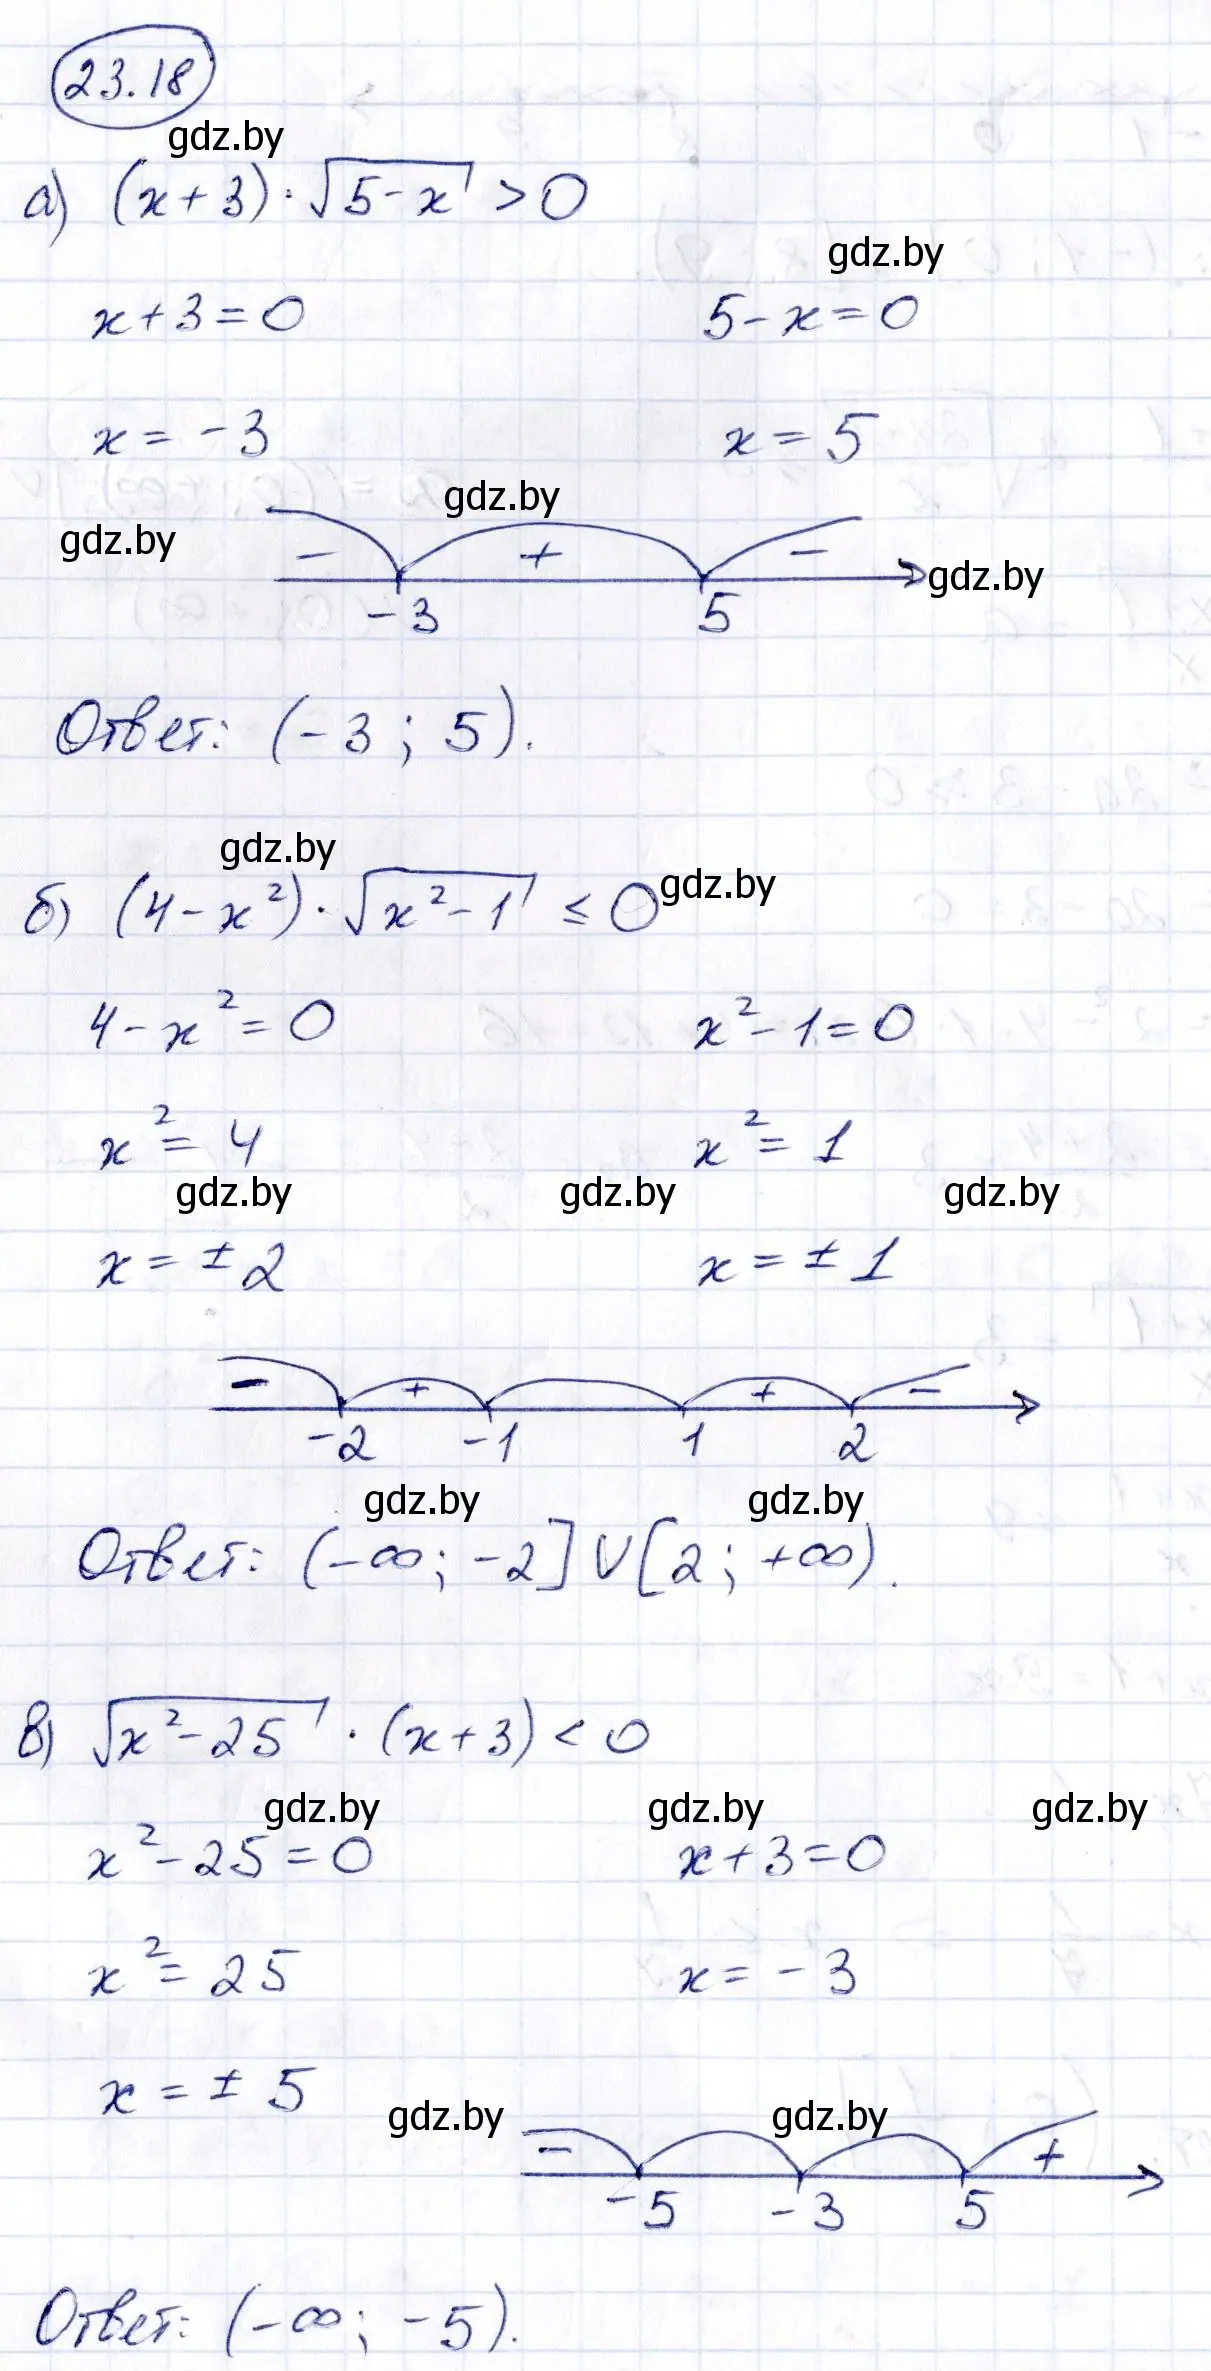 23.18
gdz.by
а) (x+3)·√(5-x) > 0
gdz.by
x+3=0 5-x=0
x=-3 x=5
gdz.by
gdz.by
- + -
gdz.by
-3 5
Ответ: (-3; 5).
gdz.by
gdz.by
б) (4-x²)·√(x²-1) ≤ 0
4-x²=0 x²-1=0
x²=4 x²=1
gdz.by gdz.by gdz.by
x=±2 x=±1
- + + -
-2 -1 1 2
gdz.by gdz.by
Ответ: (-∞; -2]∪[2; +∞).
в) √(x²-25)·(x+3) < 0
gdz.by gdz.by gdz.by
x²-25=0 x+3=0
x²=25 x=-3
x=±5
gdz.by gdz.by
- +
-5 -3 5
Ответ: (-∞; -5).